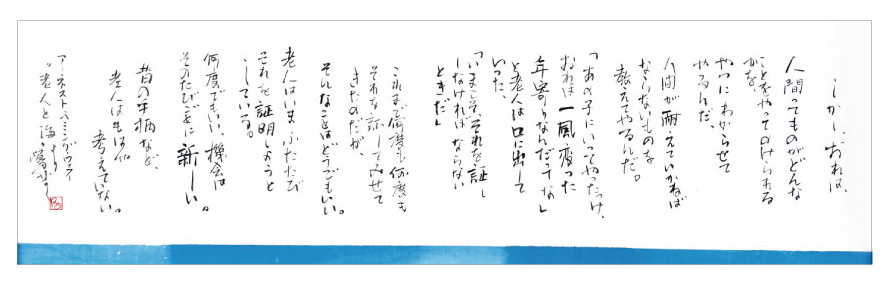 しかし、おれは、
人間ってものがどんな
ことをやってのけられる
かを、
やつにわからせて
やるんだ、
人間が耐えていかねば
ならないものを
教えてやるんだ。
「あの子にいってやったっけ、
おれは一風変った
年寄りなんだってな」
と老人は口に出して
いった、
「いまこそ、それを証し
しなければならない
ときだ」
これまで何度も何度も
それを証してみせて
きたのだが、
そんなことはどうでもいい。
老人はいまふたたび
それを証明しようと
している。
何度でもいい、機会は
そのたびごとに新しい。
昔の手柄など、
老人はもはや
考えていない。
アーネスト・ヘミングウェイ
“老人と海”より